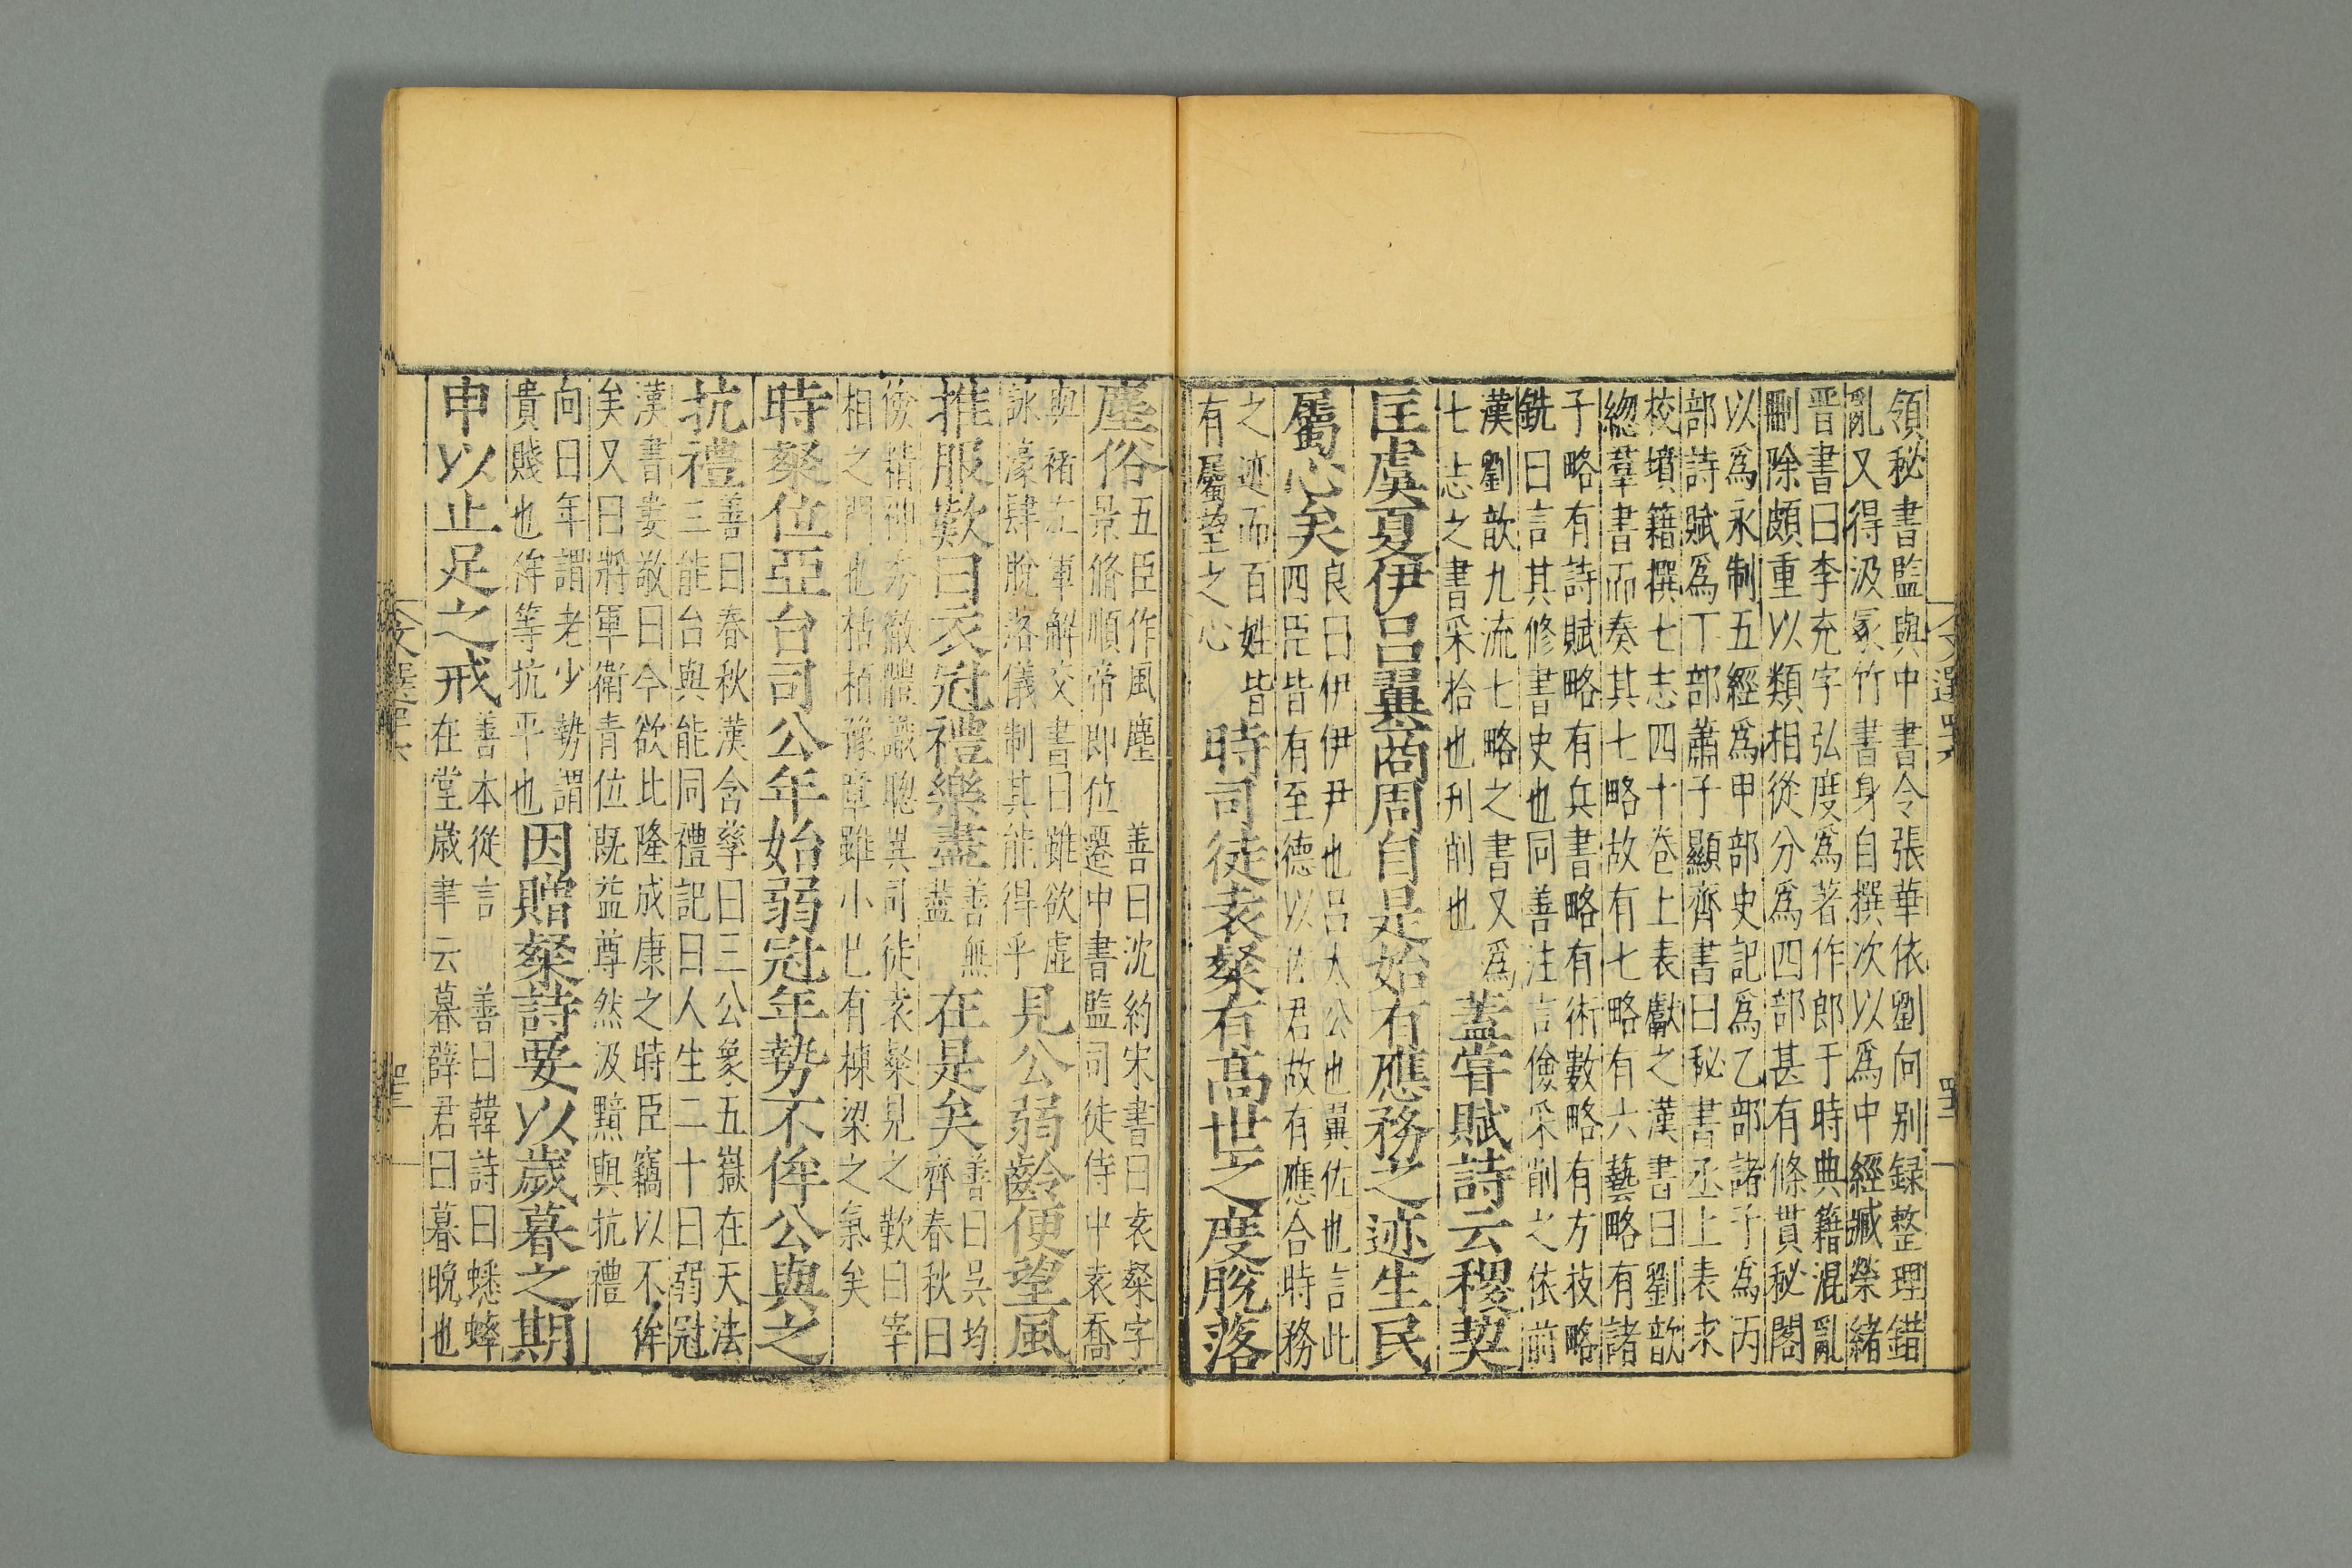 領秘書監與中書令張華依劉向别録整理錯
亂又得汲冢竹書身自撰次以爲中經臧榮緒
晋書曰李充字弘度爲著作郎于時典籍混亂
刪除頗重以類相從分爲四部甚有條貫秘閣
以爲永制五經爲甲部史記爲乙部諸子爲丙
部詩賦爲丁部蕭子顯齊書曰秘書丞上表求
校墳籍撰七志四十卷上表獻之漢書曰劉歆
緫羣書而奏其七略故有七略有六藝略有諸
子略有詩賦略有兵書略有術數略有方技略
銑曰言其修書史也同善注言儉采削之依前
漢劉歆九流七略之書又爲
七志之書采拾也刋削也
蓋甞賦詩云稷契
匡虞夏伊吕翼商周自是始有應務之迹生民
屬心矣
良曰伊伊尹也吕太公也翼佐也言此
四臣皆有至德以佐君故有應合時務
之迹而百姓皆
有屬望之心
時司徒袁粲有高世之度脫落
塵俗
五臣作風塵 善曰沈約宋書曰袁粲字
景脩順帝即位遷中書監司徒侍中袁喬
與褚左軍解交書曰雖欲虛
詠濠肆脫落儀制其能得乎
見公弱齡便望風
推服歎曰衣冠禮樂盡
善無
盡
在是矣
善曰吴均
齊春秋曰
儉精神秀徹體識聰異司徒袁粲見之歎曰宰
相之門也栝栢豫章雖小已有棟梁之氣矣
時粲位亞台司公年始弱冠年勢不侔公與之
抗禮
善曰春秋漢含孳曰三公象五嶽在天法
三能台與能同禮記曰人生二十曰弱冠
漢書婁敬曰今欲比隆成康之時臣竊以不侔
矣又曰將軍衛青位既益尊然汲黯與抗禮
向曰年謂老少勢謂
貴賤也侔等抗平也
因贈粲詩要以歲暮之期
申以止足之戒
善本從言 善曰韓詩曰蟋蟀
在堂歳聿云暮薛君曰暮晩也
文選
文選